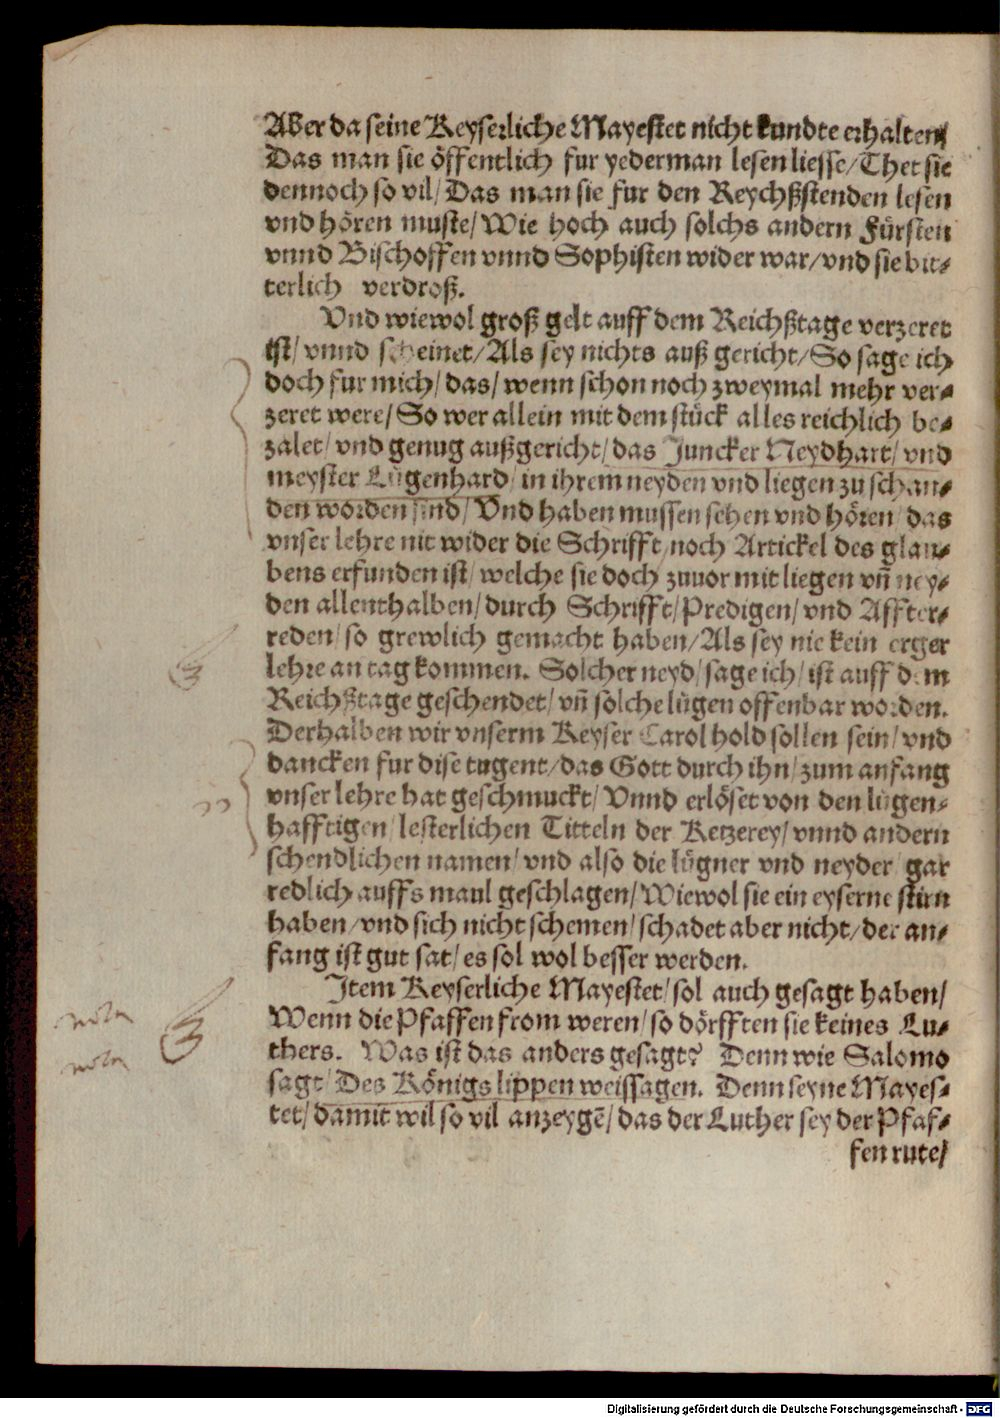 Aber da seine Keyserliche Mayestet nicht kundte erhalten/
Das man sie öffentlich fur yederman lesen liesse/ Thet sie
dennoch so vil/ Das man sie fur den Reychßstenden lesen
vnd hören muste/ Wie hoch auch solchs andern Fürsten
vnnd Bischoffen vnnd Sophisten wider war/ vnd sie bit⸗
terlich verdroß.
Vnd wiewol groß gelt auff dem Reichßtage verzeret
ist/ vnnd scheinet/ Als sey nichts auß gericht/ So sage ich
doch fur mich/ das/ wenn schon noch zweymal mehr ver⸗
zeret were/ So wer allein mit dem stück alles reichlich be⸗
zalet/ vnd genug außgericht/ das Juncker Neydhart/ vnd
meyster Lügenhard/ in ihrem neyden vnd liegen zu schan⸗
den worden sind/ Vnd haben mussen sehen vnd hören/ das
vnser lehre nit wider die Schrifft/ noch Artickel des glau⸗
bens erfunden ist/ welche sie doch zuuor mit liegen vñ ney⸗
den allenthalben/ durch Schrifft/ Predigen/ vnd Affter⸗
reden/ so grewlich gemacht haben/ Als sey nie kein erger
lehre an tag kommen. Solcher neyd/ sage ich/ ist auff dem
Reichßtage geschendet/ vñ solche lügen offenbar worden.
Derhalben wir vnserm Keyser Carol hold sollen sein/ vnd
dancken fur dise tugent/ das Gott durch ihn/ zum anfang
vnser lehre hat geschmuckt/ Vnnd erlöset von den lügen⸗
hafftigen/ lesterlichen Titteln der Ketzerey/ vnnd andern
schendlichen namen/ vnd also die lügner vnd neyder/ gar
redlich auffs maul geschlagen/ Wiewol sie ein eyserne stirn
haben/ vnd sich nicht schemen/ schadet aber nicht/ der an⸗
fang ist gut sat/ es sol wol besser werden.
Item Keyserliche Mayestet/ sol auch gesagt haben/
nota
Wenn die Pfaffen from weren/ so dörfften sie keines Lu⸗
thers. Was ist das anders gesagt? Denn wie Salomo
nota
sagt/ Des Königs lippen weissagen. Denn seyne Mayes⸗
tet/ damit wil so vil anzeygẽ/ das der Luther sey der Pfaf⸗
fen rute/
Digitalisierung gefördert durch die Deutsche Forschungsgemeinschaft - DFG